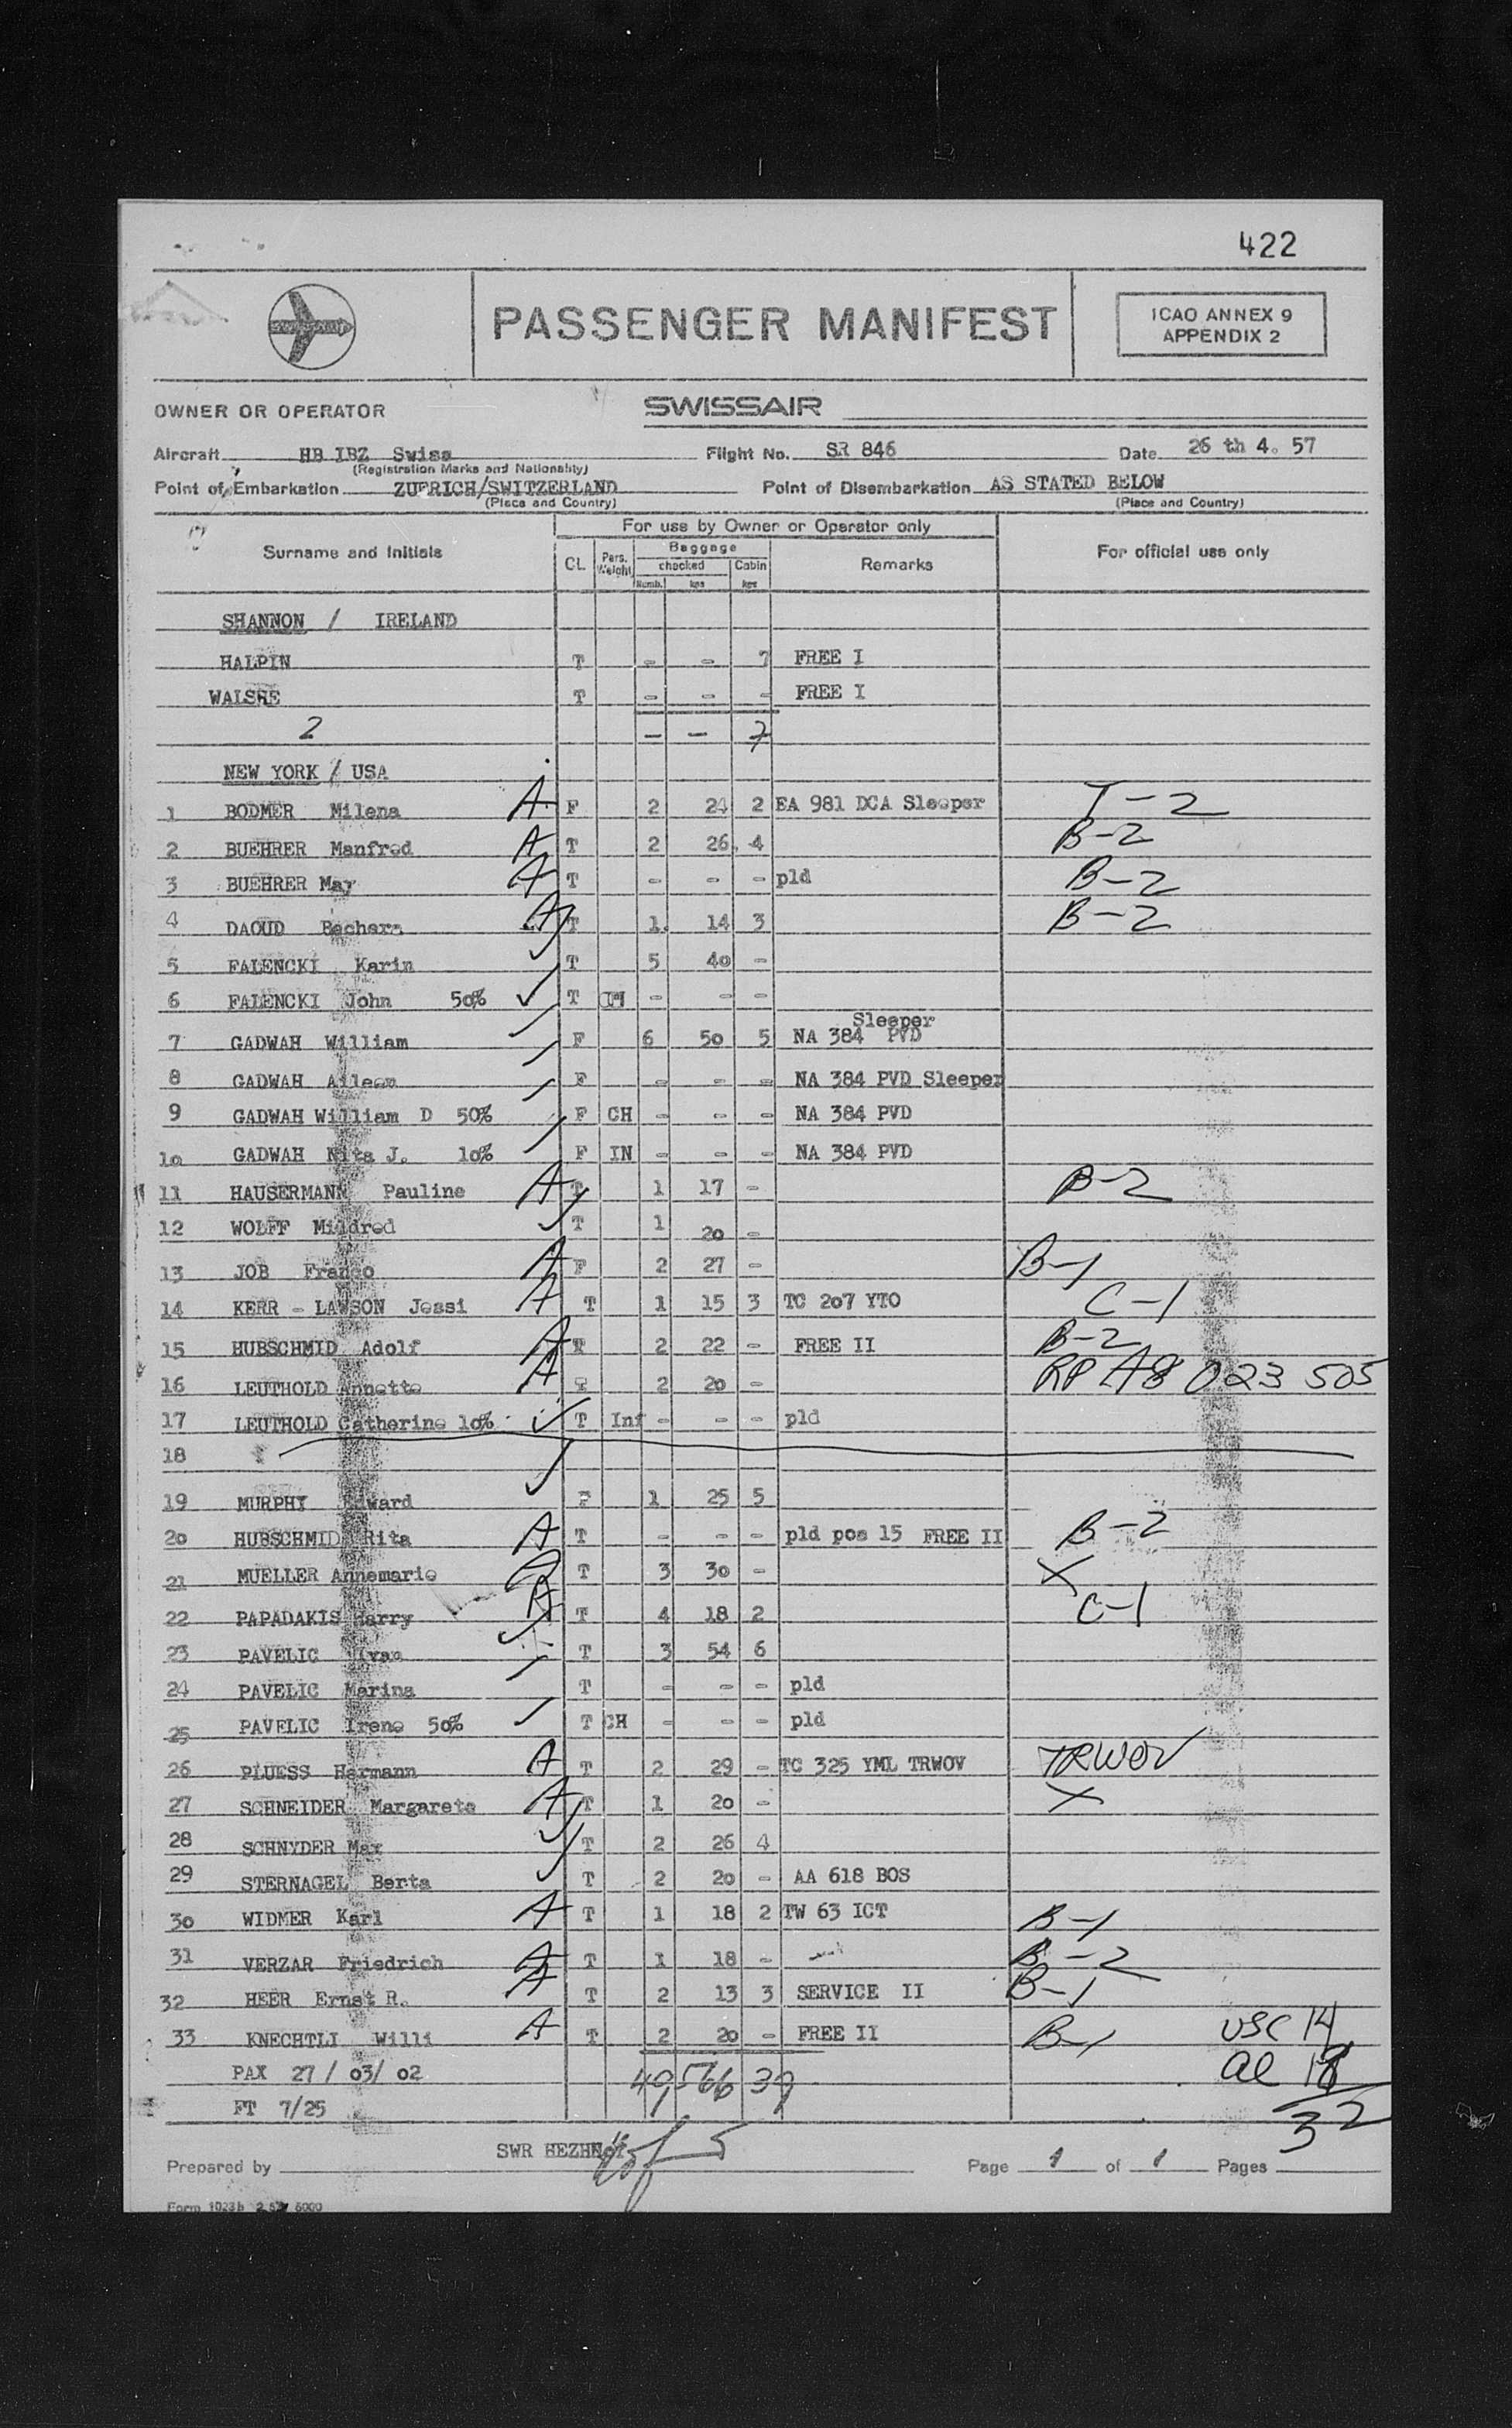 422
PASSENGER MANIFEST
ICAO ANNEX 9
APPENDIX 2
OWNER OR OPERATOR SWISSAIR
Aircraft HB IBZ Swiss Flight No. SR 846 Date 26 th 4. 57
(Registration Marks and Nationality)
Point of Embarkation ZUERICH/SWITZERLAND Point of Disembarkation AS STATED BELOW
(Place and Country) (Place and Country)
For use by Owner or Operator only
Surname and Initials CL Pers. Weight Baggage checked Cabin Remarks For official use only
Numb. kgs kgs
SHANNON / IRELAND
HALPIN T - - 7 FREE I
WALSHE T - - - FREE I
2 - - 7
NEW YORK / USA
1 BODMER Milena A F 2 24 2 EA 981 DCA Sleeper T-2
2 BUEHRER Manfred A T 2 26 4 B-2
3 BUEHRER May A T - - - pld B-2
4 DAOUD Bechara A T 1 14 3 B-2
5 FALENCKI Karin T 5 40 -
6 FALENCKI John 50% ✓ T - - -
7 GADWAH William F 6 50 5 NA 384 PVD Sleeper
8 GADWAH Aileen F - - - NA 384 PVD Sleeper
9 GADWAH William D 50% F CH - - - NA 384 PVD
10 GADWAH Nita J. 10% F IN - - - NA 384 PVD
11 HAUSERMANN Pauline A T 1 17 - B-2
12 WOLFF Mildred T 1 20 -
13 JOB Franco A F 2 27 - B-1
14 KERR - LAWSON Jessi A T 1 15 3 TC 207 YTO C-1
15 HUBSCHMID Adolf A T 2 22 - FREE II B-2
16 LEUTHOLD Annette A 2 20 - RP A8 023 505
17 LEUTHOLD Catherine 10% ✓ T Inf - - - pld
18
19 MURPHY Edward F 1 25 5
20 HUBSCHMID Rita A T - - - pld pos 15 FREE II B-2
21 MUELLER Annemarie T 3 30 - X
22 PAPADAKIS Harry A T 4 18 2 C-1
23 PAVELIC Ivan T 3 54 6
24 PAVELIC Marina T - - - pld
25 PAVELIC Irene 50% T CH - - - pld
26 PLUESS Hermann A T 2 29 - TC 325 YML TRWOV TRWOV
27 SCHNEIDER Margarete A T 1 20 - X
28 SCHNYDER Max T 2 26 4
29 STERNAGEL Berta T 2 20 - AA 618 BOS
30 WIDMER Karl A T 1 18 2 TW 63 ICT B-1
31 VERZAR Friedrich A T 1 18 - B-2
32 HEER Ernst R. A T 2 13 3 SERVICE II B-1
33 KNECHTLI Willi A T 2 20 - FREE II B-1 USC 14
PAX 27 / 03/ 02 49 566 39 al 18
FT 7/25 32
Prepared by SWR HEZHN Page 1 of 1 Pages
Form 1023b 2.57 5000